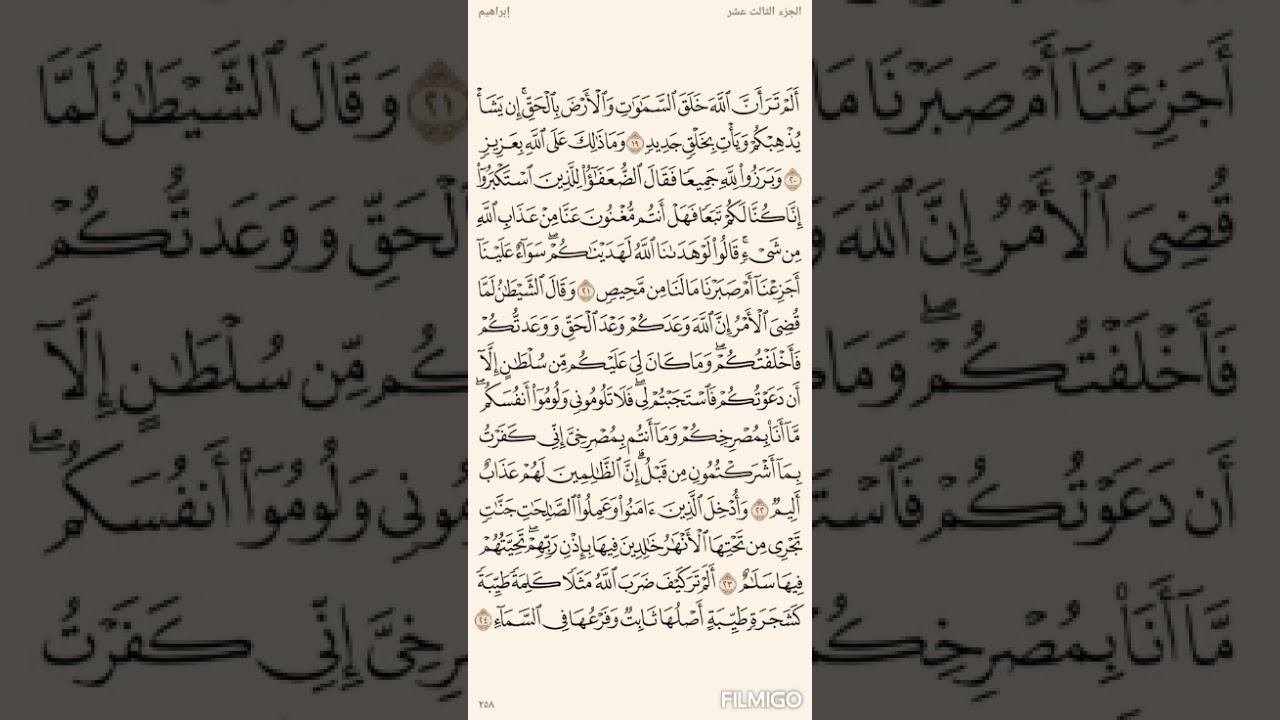 الجزء الثالث عشر
إبراهيم
أَلَمْ تَرَ أَنَّ ٱللَّهَ خَلَقَ ٱلسَّمَٰوَٰتِ وَٱلْأَرْضَ بِٱلْحَقِّ ۚ إِن يَشَأْ
يُذْهِبْكُمْ وَيَأْتِ بِخَلْقٍ جَدِيدٍ ١٩ وَمَا ذَٰلِكَ عَلَى ٱللَّهِ بِعَزِيزٍ
٢٠ وَبَرَزُوا۟ لِلَّهِ جَمِيعًا فَقَالَ ٱلضُّعَفَٰٓؤُا۟ لِلَّذِينَ ٱسْتَكْبَرُوٓا۟
إِنَّا كُنَّا لَكُمْ تَبَعًا فَهَلْ أَنتُم مُّغْنُونَ عَنَّا مِنْ عَذَابِ ٱللَّهِ
مِن شَىْءٍ ۚ قَالُوا۟ لَوْ هَدَىٰنَا ٱللَّهُ لَهَدَيْنَٰكُمْ ۖ سَوَآءٌ عَلَيْنَآ
أَجَزِعْنَآ أَمْ صَبَرْنَا مَا لَنَا مِن مَّحِيصٍ ٢١ وَقَالَ ٱلشَّيْطَٰنُ لَمَّا
قُضِىَ ٱلْأَمْرُ إِنَّ ٱللَّهَ وَعَدَكُمْ وَعْدَ ٱلْحَقِّ وَوَعَدتُّكُمْ
فَأَخْلَفْتُكُمْ ۖ وَمَا كَانَ لِىَ عَلَيْكُم مِّن سُلْطَٰنٍ إِلَّآ
أَن دَعَوْتُكُمْ فَٱسْتَجَبْتُمْ لِى ۖ فَلَا تَلُومُونِى وَلُومُوٓا۟ أَنفُسَكُم ۖ
مَّآ أَنَا۠ بِمُصْرِخِكُمْ وَمَآ أَنتُم بِمُصْرِخِىَّ ۖ إِنِّى كَفَرْتُ
بِمَآ أَشْرَكْتُمُونِ مِن قَبْلُ ۗ إِنَّ ٱلظَّٰلِمِينَ لَهُمْ عَذَابٌ
أَلِيمٌ ٢٢ وَأُدْخِلَ ٱلَّذِينَ ءَامَنُوا۟ وَعَمِلُوا۟ ٱلصَّٰلِحَٰتِ جَنَّٰتٍ
تَجْرِى مِن تَحْتِهَا ٱلْأَنْهَٰرُ خَٰلِدِينَ فِيهَا بِإِذْنِ رَبِّهِمْ ۖ تَحِيَّتُهُمْ
فِيهَا سَلَٰمٌ ٢٣ أَلَمْ تَرَ كَيْفَ ضَرَبَ ٱللَّهُ مَثَلًا كَلِمَةً طَيِّبَةً
كَشَجَرَةٍ طَيِّبَةٍ أَصْلُهَا ثَابِتٌ وَفَرْعُهَا فِى ٱلسَّمَآءِ ٢٤
٢٥٨
FILMIGO